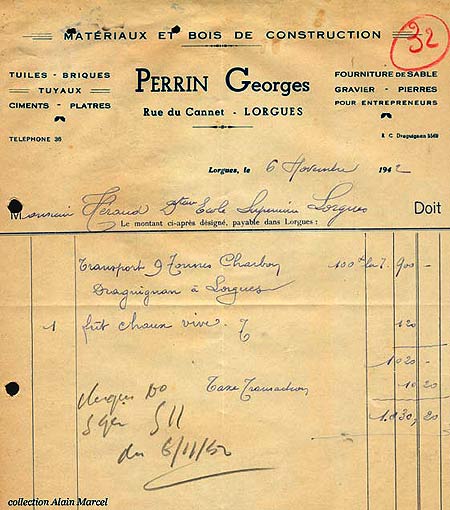 MATÉRIAUX ET BOIS DE CONSTRUCTION
32
TUILES - BRIQUES
TUYAUX
CIMENTS - PLATRES
TELEPHONE 36
PERRIN Georges
Rue du Cannet - LORGUES
FOURNITURE DE SABLE
GRAVIER - PIERRES
POUR ENTREPRENEURS
R C Draguignan
Lorgues, le 6 Novembre 1942
Monsieur Héraud Ecole Supérieure Lorgues Doit
Le montant ci-après désigné, payable dans Lorgues :
Transport 9 Tonnes Charbon 100 la T. 900 -
Draguignan à Lorgues
1 fût chaux vive 120
1020 -
Taxe Transaction 10 20
1.030,20
du 6/11/42
collection Alain Marcel